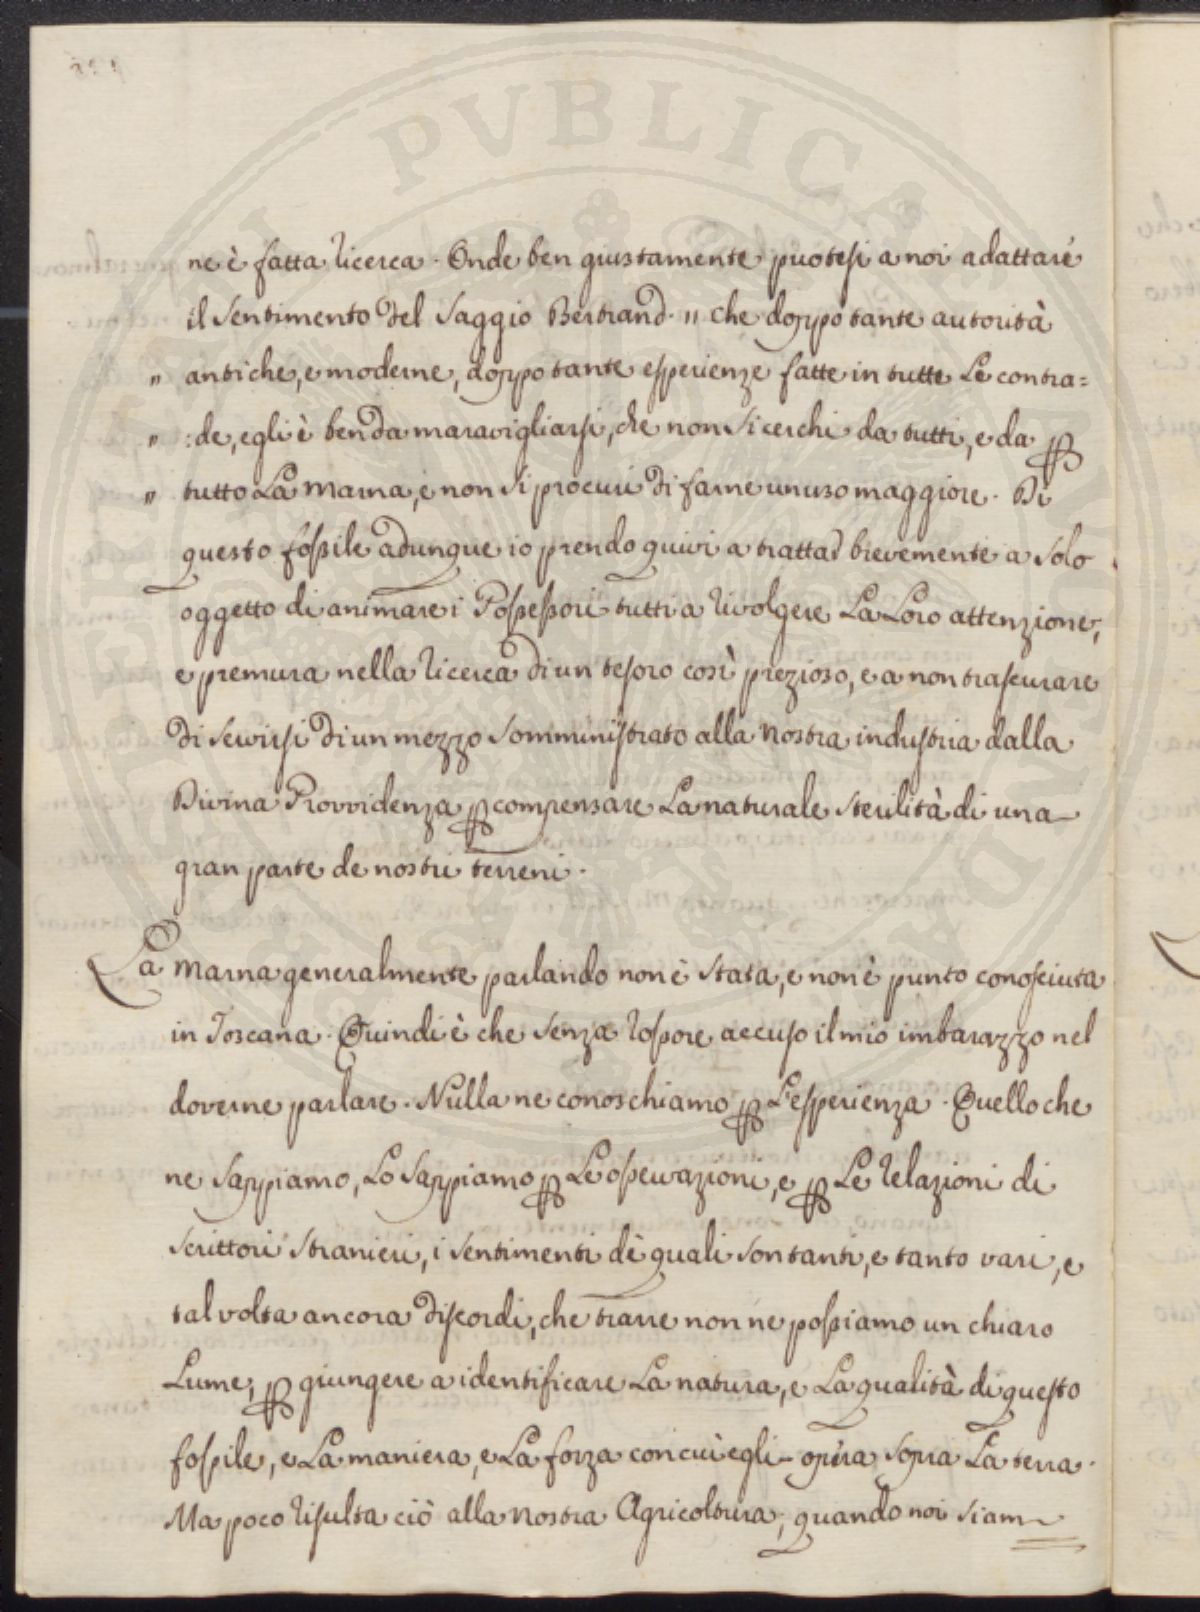 ne è fatta ricerca. Onde ben giustamente puotesi a noi adattare
il sentimento del Saggio Bertrand. " che doppo tante autorità
" antiche, e moderne, doppo tante esperienze fatte in tutte le contra=
" :de, egli è ben da maravigliarsi, che non si cerchi da tutti, e da ꝑ
" tutto la marna, e non si procuri di farne un uso maggiore. Di
questo foßile adunque io prendo quivi a trattar brevemente a solo
oggetto di animare i Poßeßori tutti a rivolgere la loro attenzione,
e premura nella ricerca di un tesoro così prezioso, e a non trascurare
di servirsi di un mezzo somministrato alla nostra industria dalla
Divina Provvidenza ꝑ compensare la naturale sterilità di una
gran parte de nostri terreni.
La marna generalmente parlando non è stata, e non è punto conosciuta
in Toscana. Quindi è che senza rossore accuso il mio imbarazzo nel
doverne parlare. Nulla ne conoschiamo ꝑ l'esperienza. Quello che
ne sappiamo, lo sappiamo ꝑ le oßervazioni, e ꝑ le relazioni di
scrittori stranieri, i sentimenti dè quali son tanti, e tanto vari, e
tal volta ancora discordi, che trarre non ne poßiamo un chiaro
lume, ꝑ giungere a identificare la natura, e la qualità di questo
foßile, e la maniera, e la forza con cui egli opera sopra la terra.
Ma poco risulta ciò alla nostra Agricoltura, quando noi siam
PUBLICAE